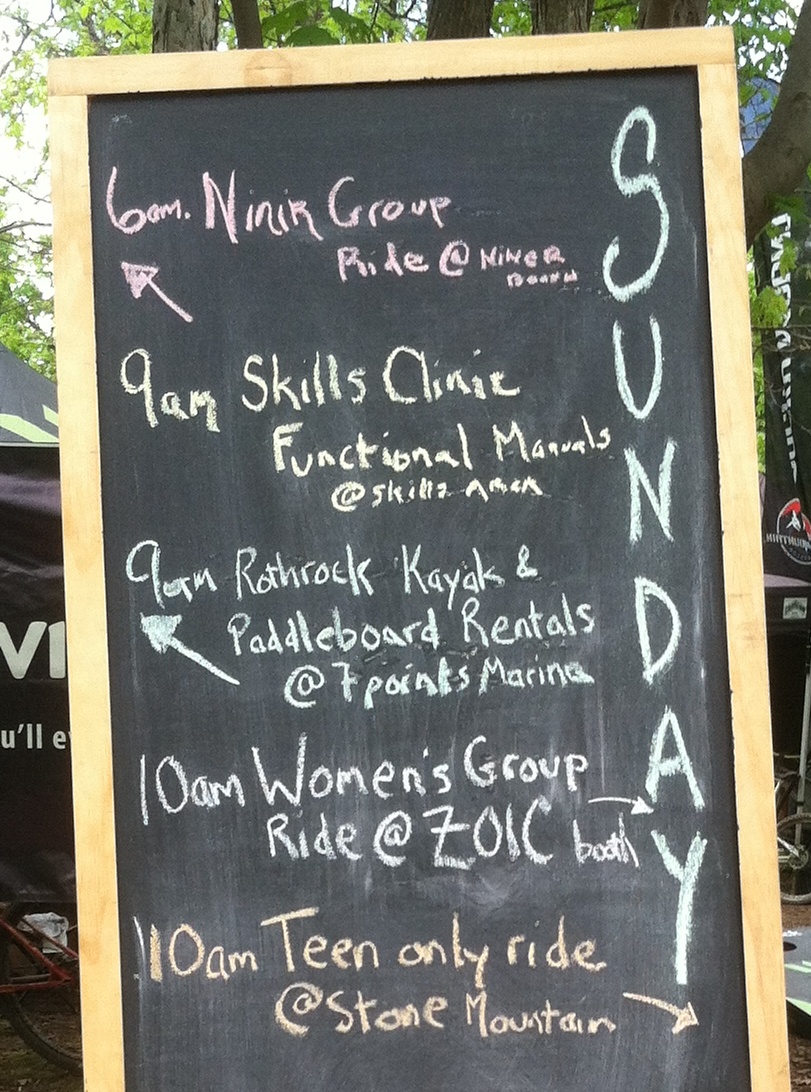 SUNDAY
6am. Ninir Group
Ride @ NINER
9am Skills Clinic
Functional Manuals
@ Skillz Area
9am Rothrock Kayak &
Paddleboard Rentals
@ 7 points Marina
10am Women's Group
Ride @ ZOIC booth
10am Teen only ride
@ Stone Mountain
u'll e